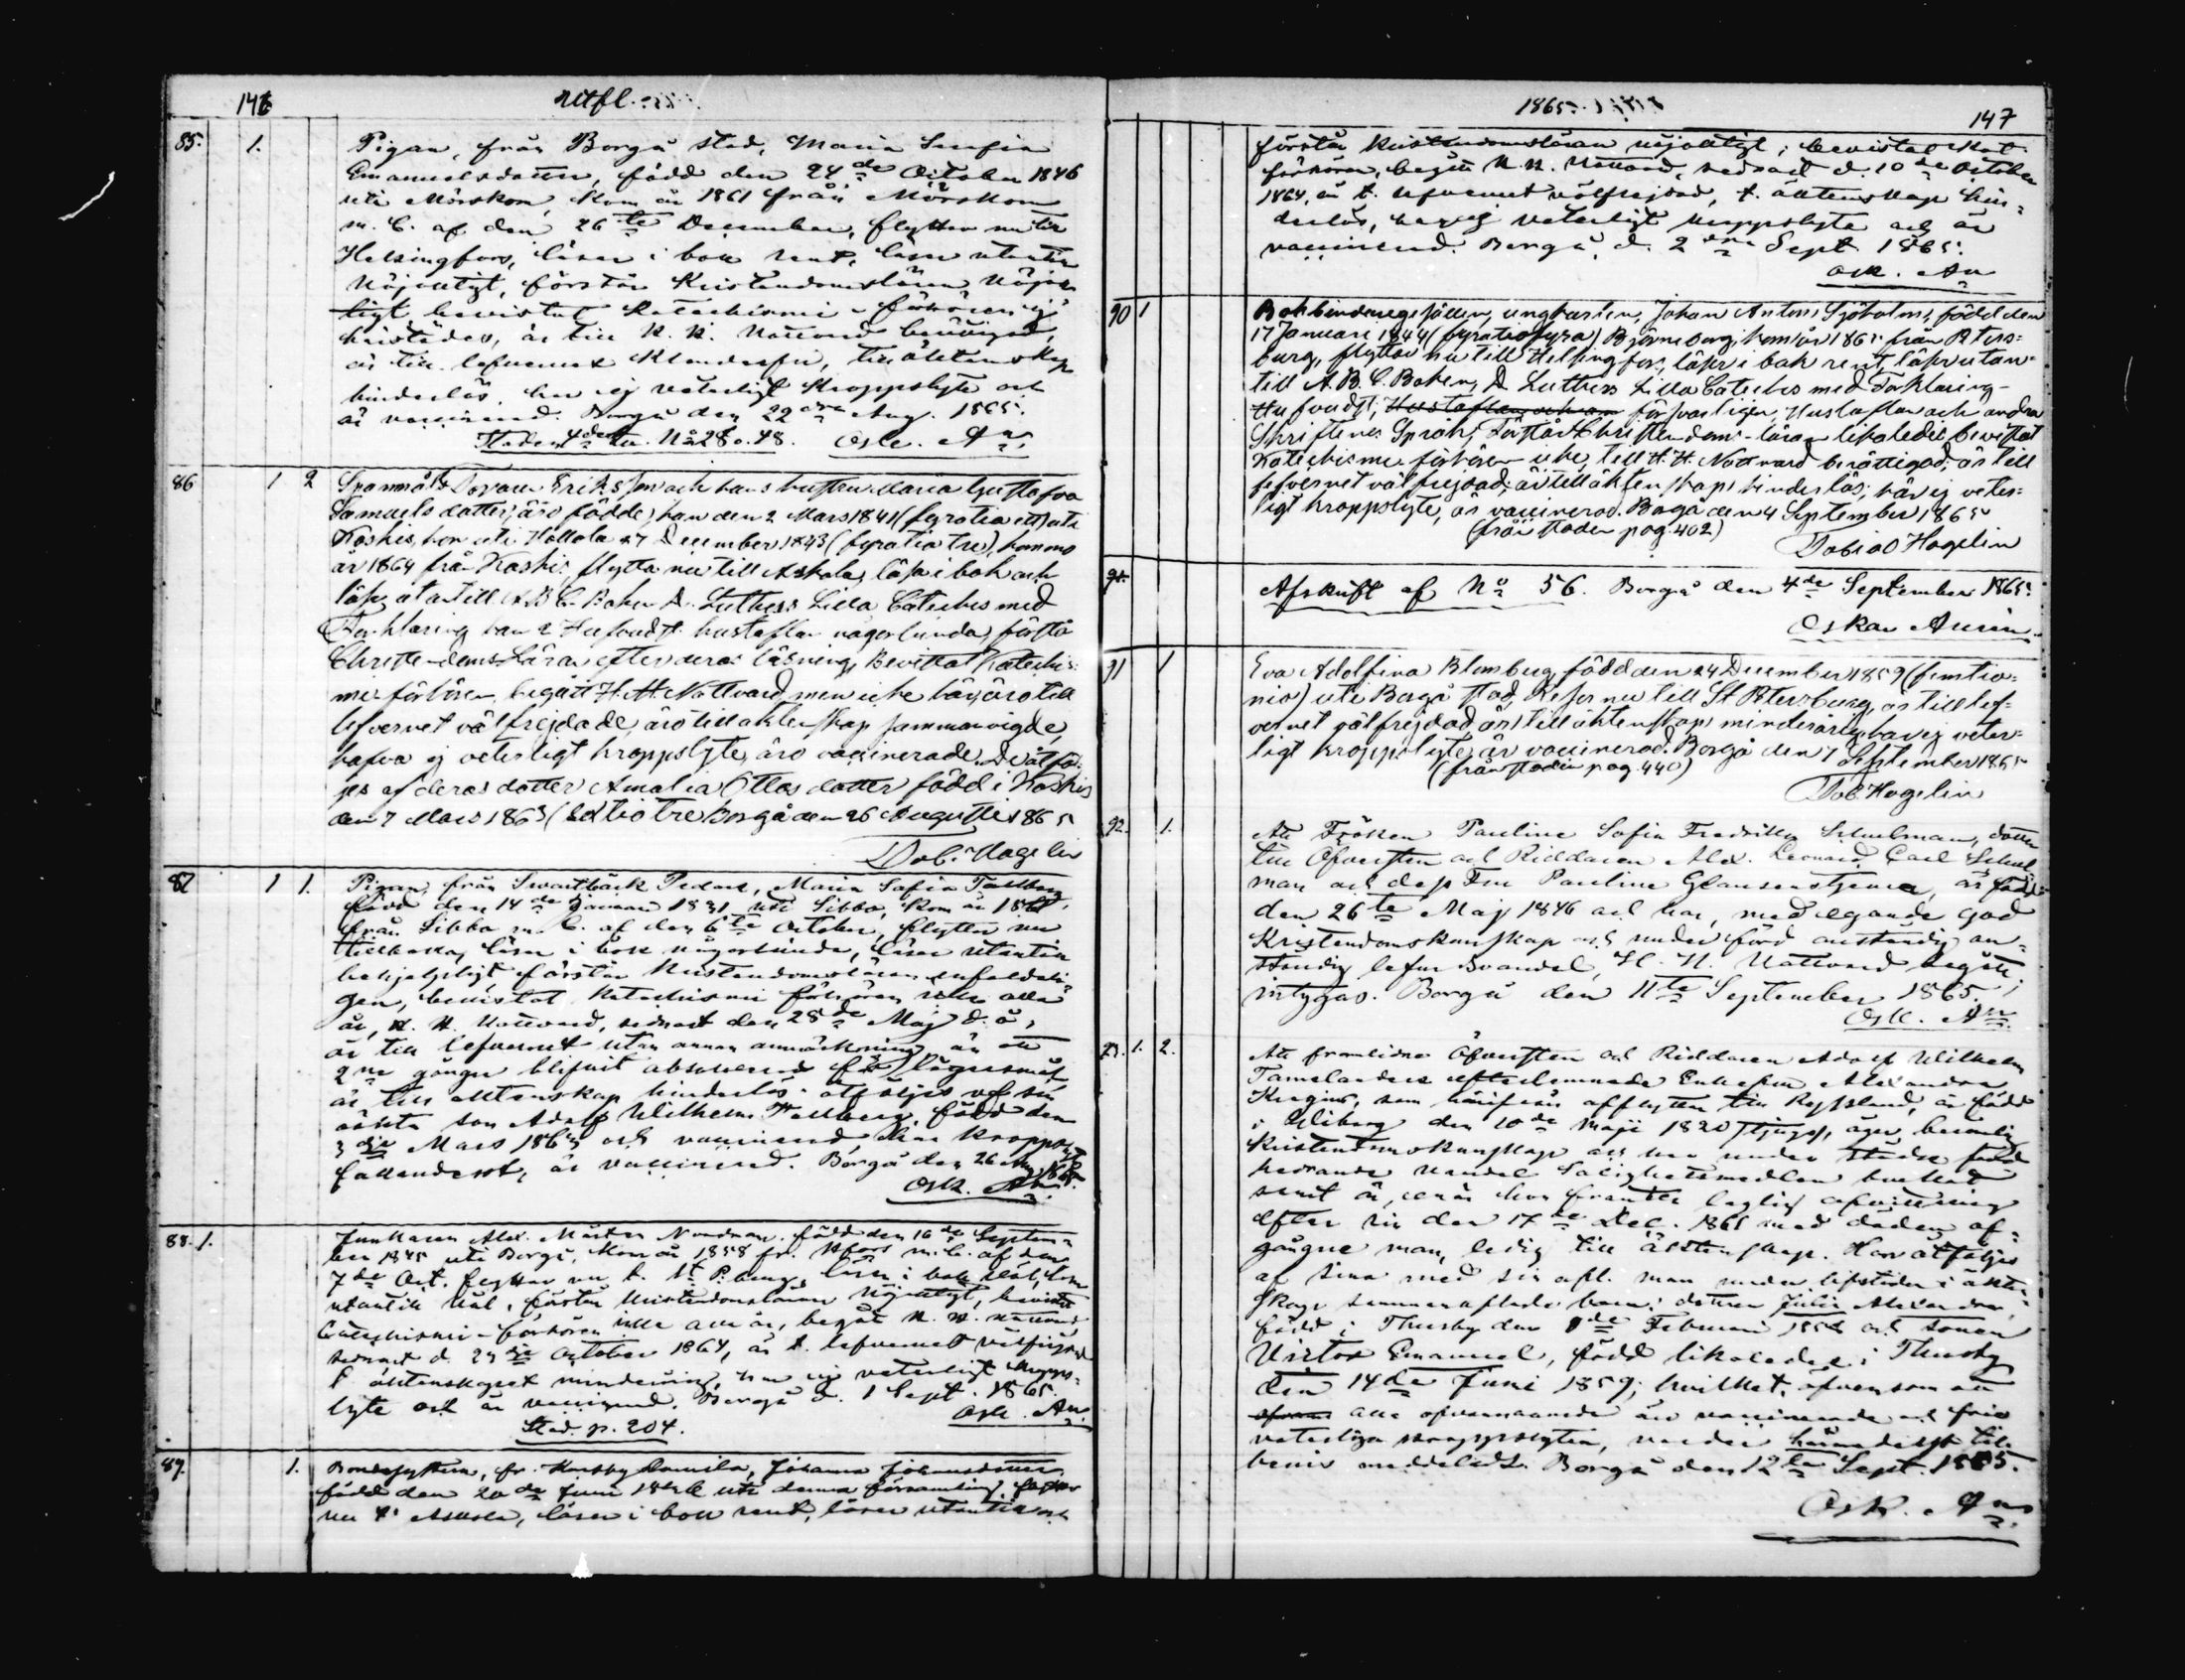 146
Utfl.
85. 1.
Pigan, från Borgå stad, Maria Serafia
Emanuelsdotter, född den 24de October 1846
uti Mörskom, kom år 1861 från Mörskom
m. b. af den 26te December, flyttar nu till
Helsingfors, läser i bok rent, läser utantill
nöjaktigt, förstår Kristendomsläran nöjak-
tigt bevistat Katechismi-förhören ej
härstädes, är till H. H. Nattvard berättigad,
är till lefvernet klanderfri, till äktenskap
hinderlös, har ej veterligt kroppslyte och
är vaccinerad. Borgå den 22dra Aug. 1865.
Staden 4de No 28 o. 48. Osk. An.
86 1 2
Spannmåls Eriksson och hans hustru Maria Gustafva
Samuels dotter, äro födde, han den 2 Mars 1841 (fyratioett) uti
Koskis, hon uti Hollola 27 December 1843 (fyratiotre), kommo
år 1864 från Koskis, flytta nu till Askola, läsa i bok och
läsa utantill A B C Boken D. Luthers Lilla Catechis med
Förklaring han 2 Hufvudst. hustaflan någorlunda, förstå
Christendoms Läran efter deras läsning, Bevistat Katechis-
mi förhören, begått H. H. Nattvard, men icke här, äro till
lefvernet välfrejdade, äro till äktenskap sammanvigde
hafva ej veterligt kroppslyte, äro vaccinerade. De åtföl-
jes af deras dotter Amalia Ottos dotter född i Koskis
den 7 Mars 1863 (sextiotre) Borgå den 26 Augusti 1865
Tob. Hagelin
87 1 1.
Pigan, från Svartbäck Pedars, Maria Sofia
född den 14de Januari 1831 uti Sibbo, kom år 186
från Sibbo m. b. af den 6te October, flyttar nu
tillbaka, läser i bok någorlunda, läser utantill
behjelpligt, förstår Kristendomsläran enfaldeli-
gen, bevistat Katechismi förhören icke alla
år, H. H. Nattvard, sednast den 28de Maj d. å.,
är till lefvernet utan annan anmärkning än att
2ne gånger blifvit absolverad för lägersmål
är till äktenskap hinderlös. åtföljes af sin
oäkta son Adolf Wilhelm, född den
3dje Mars 1863 och vaccinerad, kropps
fallandesot, är vaccinerad. Borgå den 26 Aug. 1865.
Osk. An.
88. 1.
Junkaren Alex. Mårten Nordman, född den 16de Septem-
ber 1845 uti Borgå, kom år 1858 fr. Hfors m. b. af den
7de Oct. flyttar nu t. St. P:burg, läser i bok väl, läser
utantill väl, förstår Kristendomsläran nöjaktigt, bevistat
Catechismi-förhören icke alla år, begått H. H. Nattvard
sednast d. 23dje October 1864, är t. lefvernet välfrejdad
t. äktenskapet minderårig, har ej veterligt kropps-
lyte och är vaccinerad. Borgå d. 1 Sept. 1865.
Stad. p. 204. Osk. An.
89. 1.
Bondedottren, fr. Johanna Johansdotter
född den 20de Juni uti denna församling, flyttar
nu t. Askola, läser i bok rent, läser utantill och
1865.
147
förstår Kristendomsläran nöjaktigt; bevistat Kat.
förhören, begått H. H. Nattvard, sednast d. 10de October
1864, är t. lefvernet välfrejdad, t. äktenskap hin-
derlös, har ej veterligt kroppslyte och är
vaccinerad. Borgå, d. 2dra Sept. 1865.
Osk. An
90 1
Bokbinderigesällen, ungkarlen, Johan Anton Sjöholm, född den
17 Januari 1844 (fyratiofyra) Björneborg, kom år 1865 från Peters-
burg, flyttar nu till Helsingfors, läser i bok rent, läser utan-
till A. B. C. Boken, D. Luthers Lilla Catechis med Förklaring-
Hufvudst; försvarligen, Hustaflan och andra
Skriftenes Språk, Förstår Christendoms-läran likaledes bevistat
Katechismi förhören icke, till H. H. Nattvard berättigad, är till
lefvernet välfrejdad, är till äktenskap hinderlös; här ej veter-
ligt kroppslyte, är vaccinerad. Borgå den 4 September 1865
(från staden pag. 402)
Tobias Hagelin
Afskrift af No 56. Borgå den 4de September 1865.
Oskar Aurén.
91 1
Eva Adolfina Blomberg född den 24 December 1859 (femtio-
nio) uti Borgå stad, Reser nu till St Petersburg, är till lef-
vernet välfrejdad, är till äktenskap minderårig, har ej veter-
ligt kroppslyte, är vaccinerad. Borgå den 7 September 1865
(från staden pag. 440)
Tob. Hagelin
92. 1.
Att Fröken Pauline Sofia Fredrika Schulman, dotter
till Öfversten och Riddaren Alex. Leonard Carl Schul-
man och dess Fru Pauline Glansenstjerna, är född
den 26te Maj 1846 och har, med egande god
Kristendomskunskap och under förd anständig an-
ständig lefnadsvandel, H. H. Nattvard begått,
intygas. Borgå den 11te September 1865.
Osk. An.
93. 1. 2.
Att framlidne Öfversten och Riddaren Adolf Wilhelm
Tamelanders efterlemnade Enkefru Alexandra
som härifrån afflyttar till Ryssland, är född
i Wiborg den 10de Maji 1820 /tjugo/, äger berömlig
Kristendomskunskap och har under städse förd
hedrande vandel Salighetsmedlen brukat
samt är, enär hon framter laglig afvittring
efter sin den 17de Dec. 1861 med döden af-
gångne man, ledig till äktenskap. Hon åtföljes
af sina med sin afl. man under lifstiden i äkten-
skap sammanaflade barn: dottren Julia Alexandra,
född i Thusby den 8de Februari och sonen
Victor Emanuel, född likaledes i Thusby
den 14de Juni 1859; hvilket, äfvensom att
alla ofvannamnda äro vaccinerade och frie
veterliga kroppslyten, varder härmedelst till
bevis meddeladt. Borgå den 12te Sept. 1865.
Osk. An.